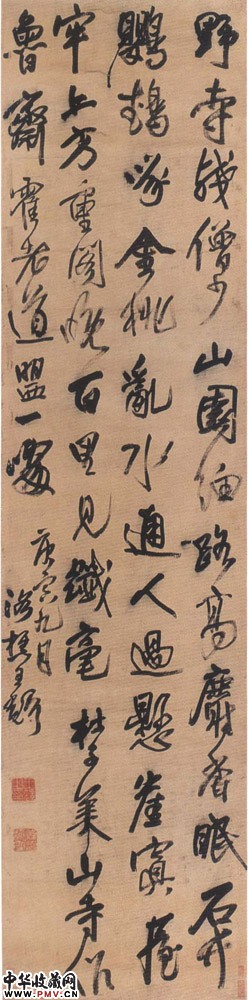 野寺殘僧少山園細路高麝香眠石竹
鸚鵡啄金桃亂水通人過懸崖寘屋
牢上方重閣晚百里見纖毫杜子美山寺作
魯齋霍老道盟一噱
庚寅九月
王鐸
中华收藏网
www.PMV.cn